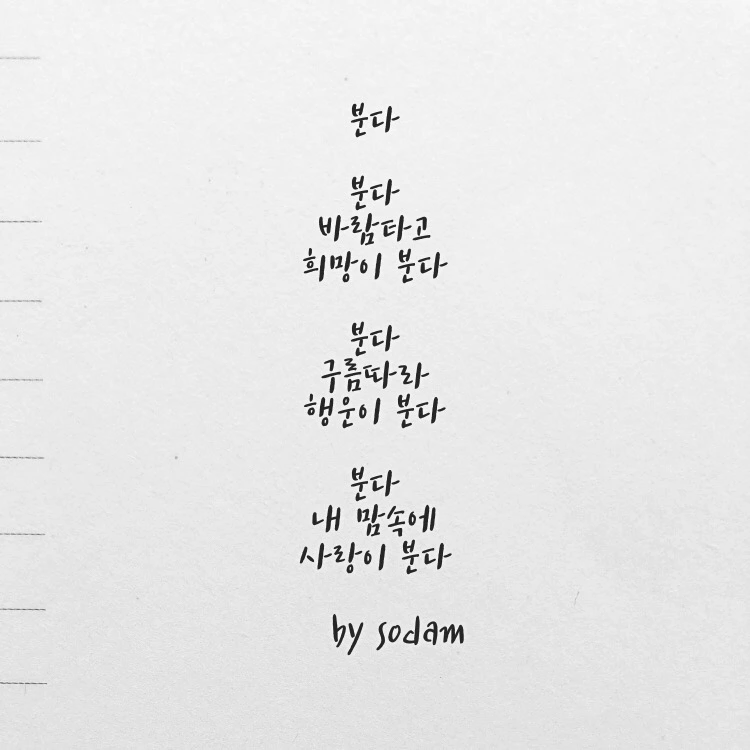 분다
분다
바람타고
희망이 분다
분다
구름따라
행운이 분다
분다
내 맘속에
사랑이 분다
by sodam